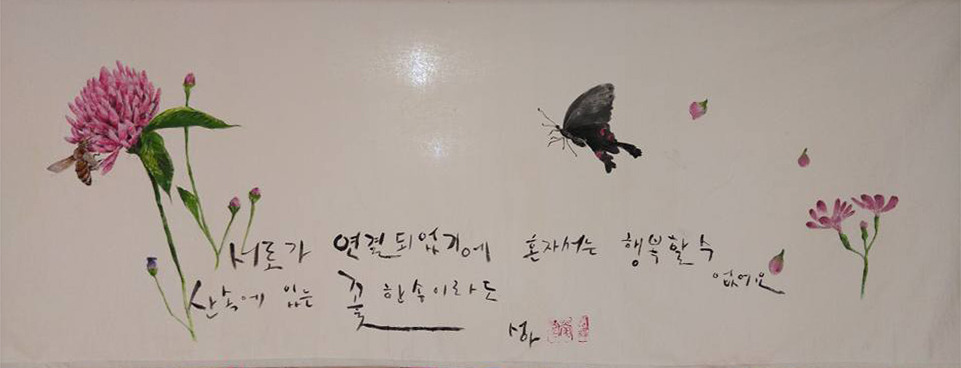 서로가 연결되었기에 혼자서는 행복할 수
없어요
산속에 있는 꽃 한송이라도